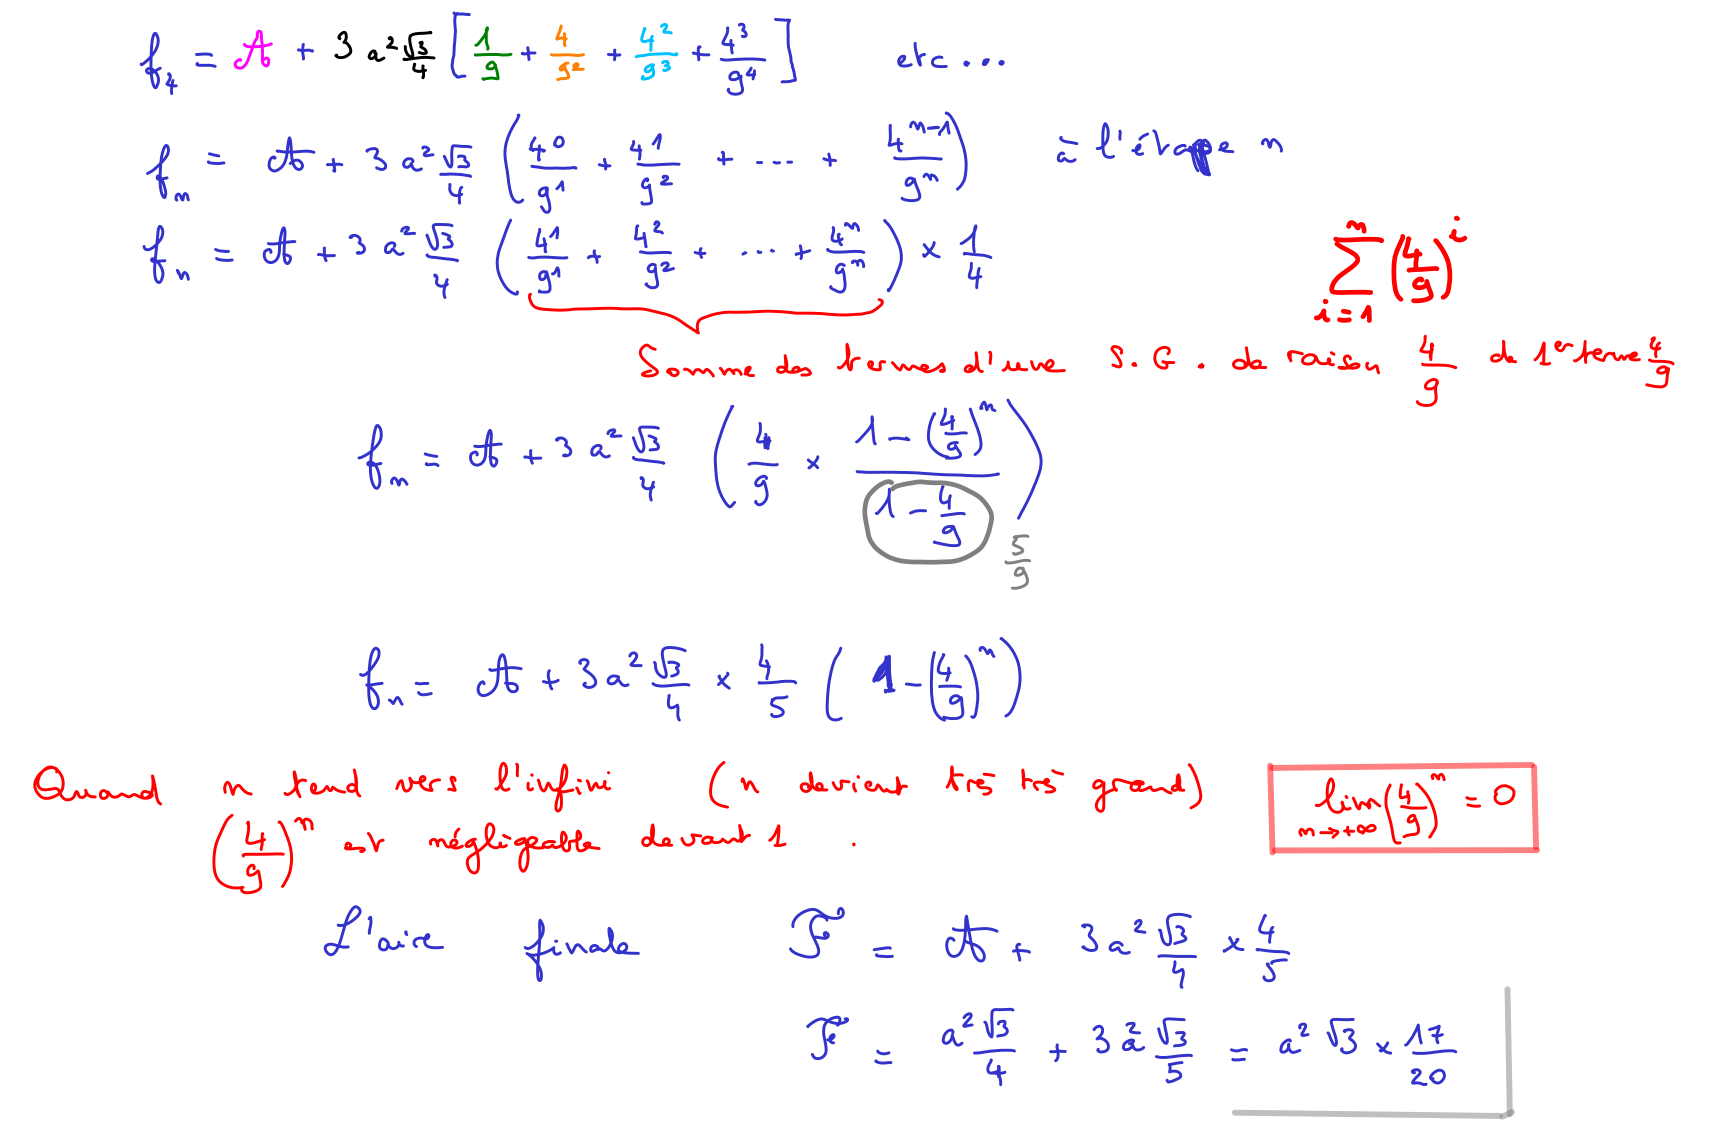 f₄ = A + 3 a² √3/4 [ 1/9 + 4/9² + 4²/9³ + 4³/9⁴ ] etc...
fₙ = A + 3 a² √3/4 ( 4⁰/9¹ + 4¹/9² + .... + 4ⁿ⁻¹/9ⁿ ) à l'étape n
fₙ = A + 3 a² √3/4 ( 4¹/9¹ + 4²/9² + ... + 4ⁿ/9ⁿ ) × 1/4
∑_{i=1}^{n} (4/9)^i
Somme des termes d'une S.G. de raison 4/9 de 1er terme 4/9
fₙ = A + 3 a² √3/4 ( 4/9 × (1 - (4/9)ⁿ)/(1 - 4/9) )
5/9
fₙ = A + 3 a² √3/4 × 4/5 ( 1 - (4/9)ⁿ )
Quand n tend vers l'infini (n devient très très grand)
(4/9)ⁿ est négligeable devant 1 .
lim_{n→+∞} (4/9)ⁿ = 0
L'aire finale F = A + 3 a² √3/4 × 4/5
F = a² √3/4 + 3 a² √3/5 = a² √3 × 17/20